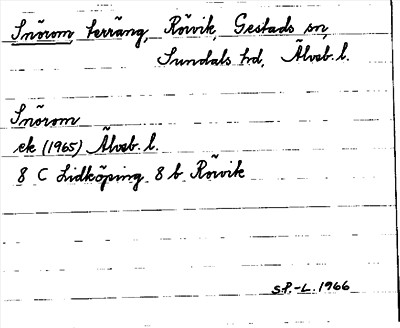 Snörom terräng, Rörvik, Gestads sn,
Sundals hd, Älvsb. l.
Snörom
ek (1965) Älvsb. l.
8 C Lidköping 8 b Rörvik
S.P.-L. 1966